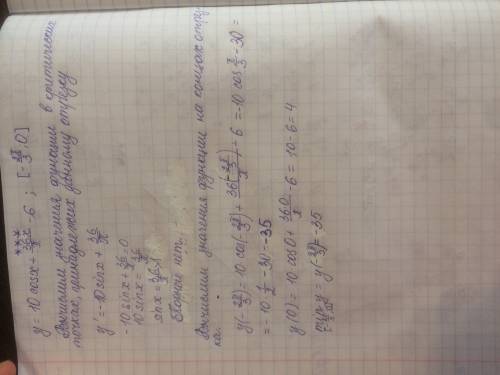 y = 10 cosx + 36x/π - 6 ; [-2π/3; 0]
Вычислим значения функции в критических
точках, принадлежих данному отрезку
y' = -10 sinx + 36/π
-10 sinx + 36/π = 0
-10 sinx = 36/π
sinx 36
Корней нет.
Вычислим значения функции на концах отрез
ка.
y(-2π/3) = 10 cos(-2π/3) + 36(-2π/3)/π - 6 = -10 cos π/3 - 30 =
= -10 1/2 - 30 = -35
y(0) = 10 cos0 + 36·0/π - 6 = 10 - 6 = 4
y = y(-2π/3) = -35